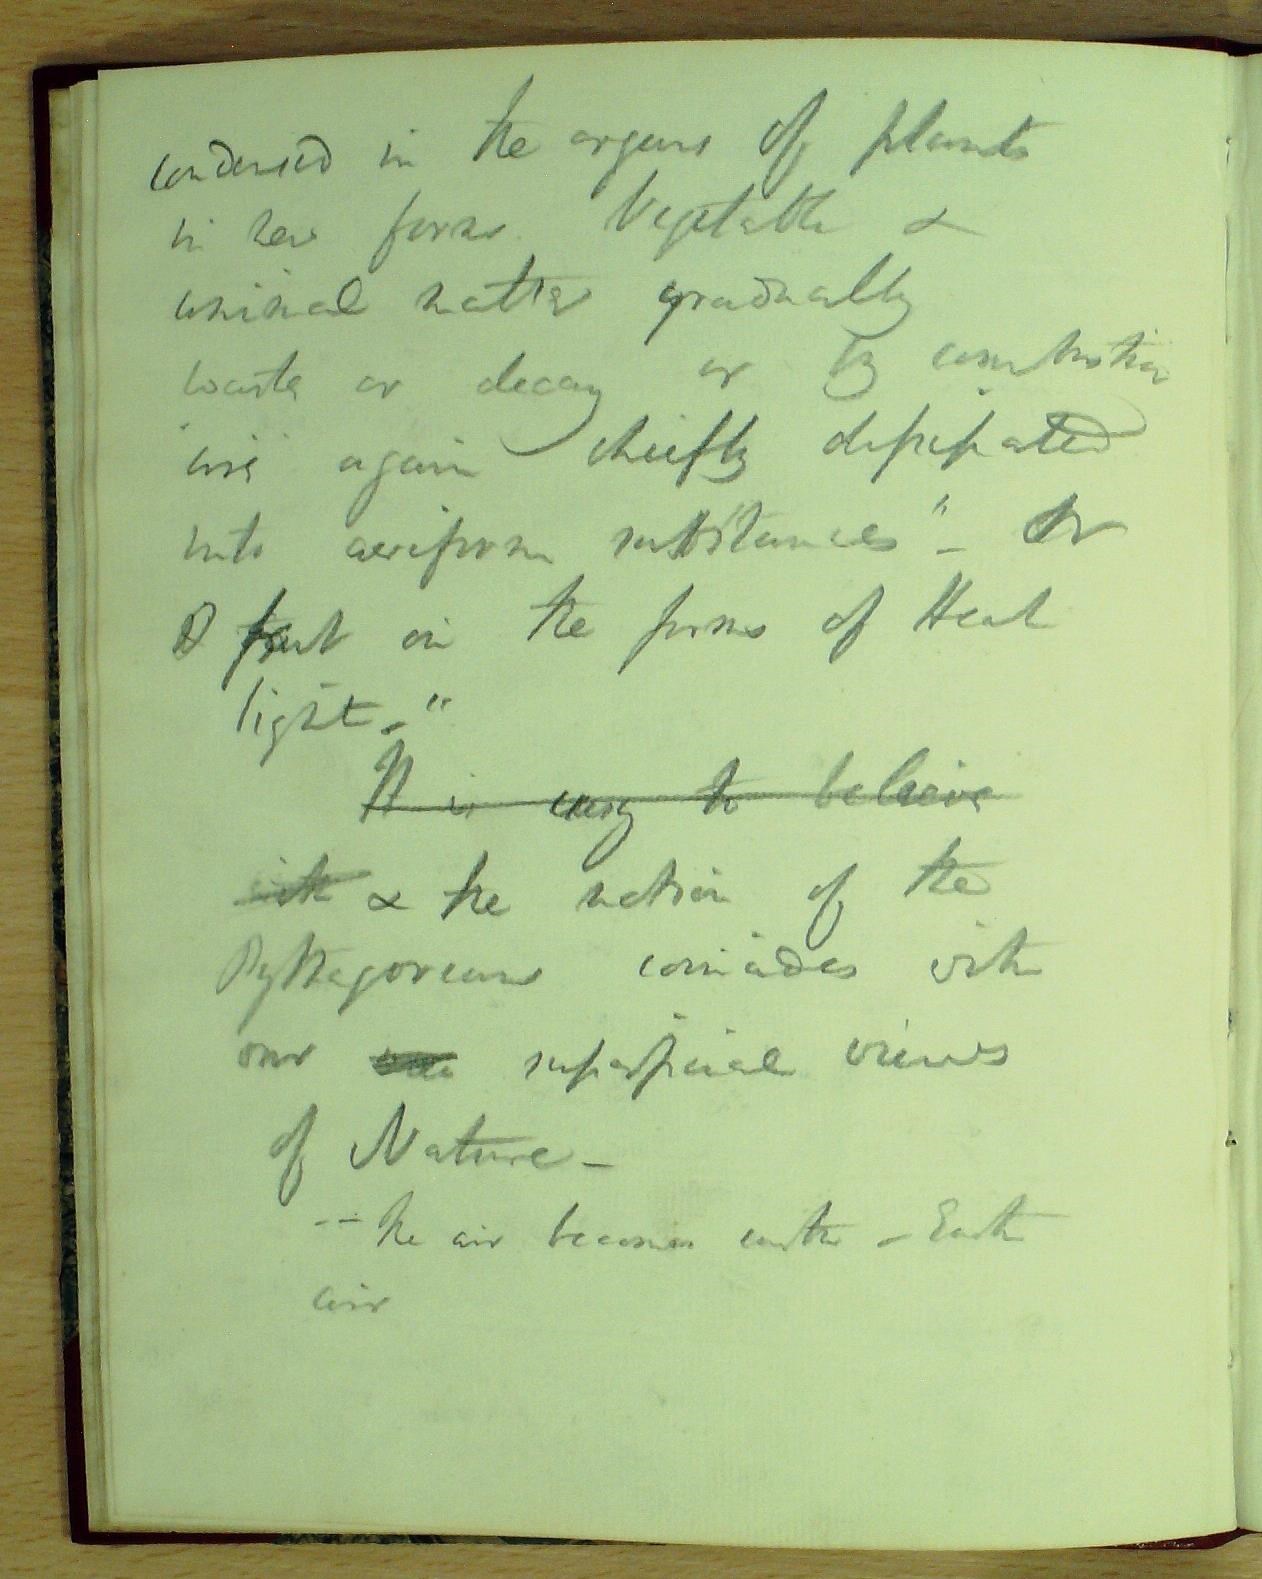 condensed in the organs of plants
in new forms. Vegetable &
animal matter gradually
waste or decay or by combustion
are again chiefly dissipated
into aeriform substances" - Or
in the forms of Heat
light - "
It is easy to believe
& the notion of the
Pythagoreans coincides with
our superficial views
of Nature -
-- the air becomes earth - Earth
air